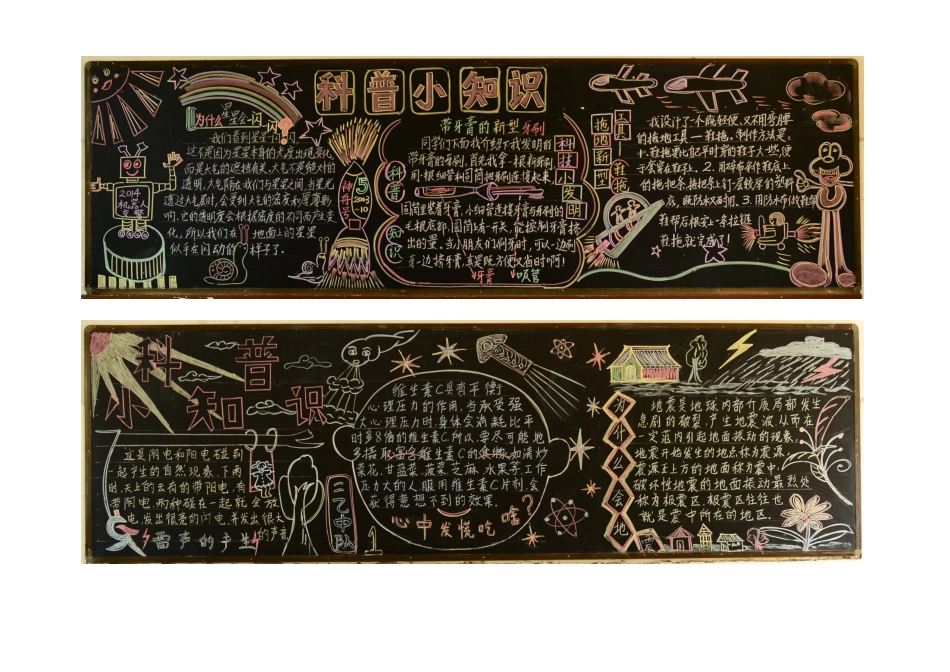 科普小知识
为什么星星会一闪一闪?
我们看到星星一闪一闪,
这不是因为星星本身的光度出现变化,
而是大气的遮挡有关,大气不是绝对的
透明,大气隔在我们与星星之间,当星光
透过大气层时,会受到大气的密度和厚薄影
响.它的透明度会根据密度的不同而产生
化,所以我们在地面上的星星
似乎在闪动的样子了.
2014
机器人
神舟号
5
2003
-10
科普知识
带牙膏的新型牙刷
科技小发明
同学们下面我介绍下我发明的
带牙膏的牙刷,首先我拿一根新牙刷,
用一根细管和圆筒把牙刷连接起来,
圆筒里装着牙膏,小细管连接牙膏与牙刷的
毛根底部,圆筒上有一开关,能控制牙膏挤
出的量.当小朋友们刷牙时,可以一边刷
牙一边挤牙膏,真是既方便又省时啊!
牙膏
吸管
拖地新型工具——鞋拖
我设计了一个既轻便,又不用弯腰
的拖地工具—鞋拖,制作方法是:
2.用碎布刷在鞋底上
底,既防水又耐用.3.用防水布做鞋帮
鞋帮后根安上一条拉链
鞋拖就完成了!
科普
小知识
这是阴电和阳电碰到
一起产生的自然现象.下雨
时,天上的云有的带阳电,有
带阴电,两种碰在一起就会放
电,发出很亮的闪电,并发出很大
的声音
雷声的产生
三乙中队
1
维生素C具有平衡
心理压力的作用,当承受强
大心理压力时,身体会消耗比平
时多8倍的维生素C.所以,要尽可能地
多摄取富含维生素C的食物,如清炒
菜花,甘蓝菜,菠菜,芝麻,水果等,工作
压力大的人服用维生素C片剂,会
获得意想不到的效果.
心中发慌吃啥?
为什么会地震
地震是地球内部介质局部发生
急剧的破裂,产生地震波,从而在
一定范围内引起地面振动的现象.
地震开始发生的地点称为震源,
震源正上方的地面称为震中,
破坏性地震的地面振动最烈处
称为极震区,极震区往往也
就是震中所在的地区.